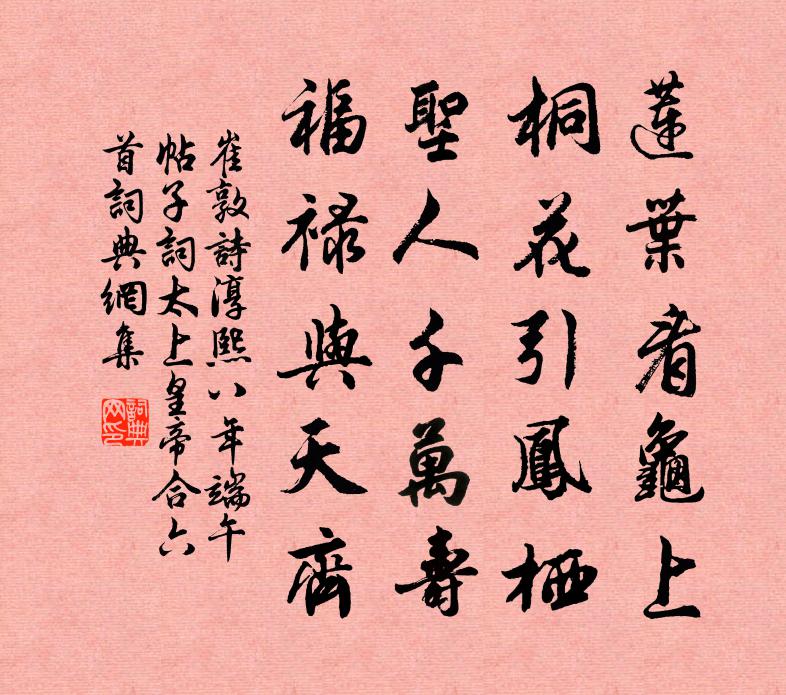 蓮葉看龜上
桐花引鳳栖
聖人千萬壽
福祿與天齊
崔敦詩淳熙八年端午
帖子詞太上皇帝合六
首詞典網集
詞典網印